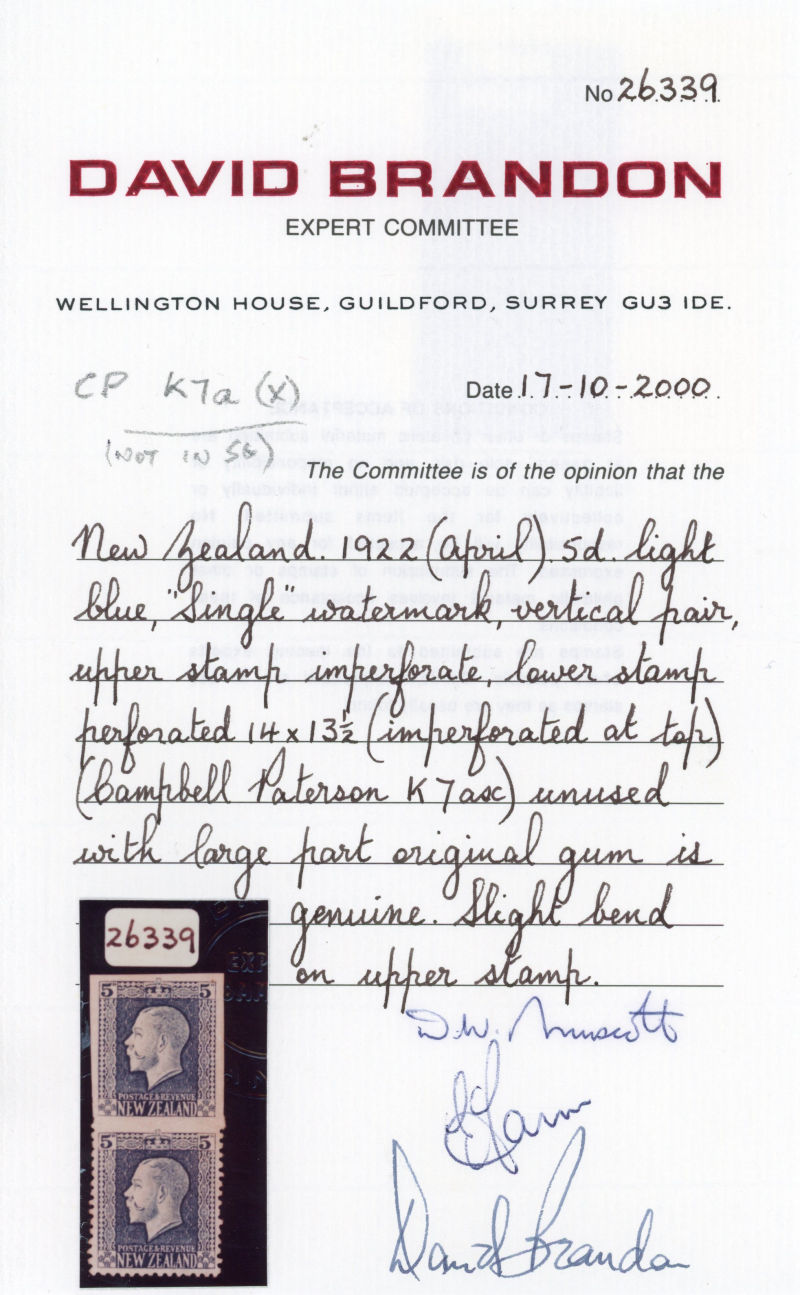 No 26339
DAVID BRANDON
EXPERT COMMITTEE
WELLINGTON HOUSE, GUILDFORD, SURREY GU3 1DE.
CP K7a (X)
Date 17-10-2000.
(NOT IN SG)
The Committee is of the opinion that the
New Zealand. 1922 (April) 5d. light
blue, "Single" watermark, vertical pair,
upper stamp imperforate, lower stamp
perforated 14 x 13½ (imperforated at top)
(Campbell Paterson K7ax) unused
with large part original gum is
genuine. Slight bend
on upper stamp.
26339
5 5
POSTAGE & REVENUE
NEW ZEALAND
5 5
POSTAGE & REVENUE
NEW ZEALAND
D.W.
David Brandon